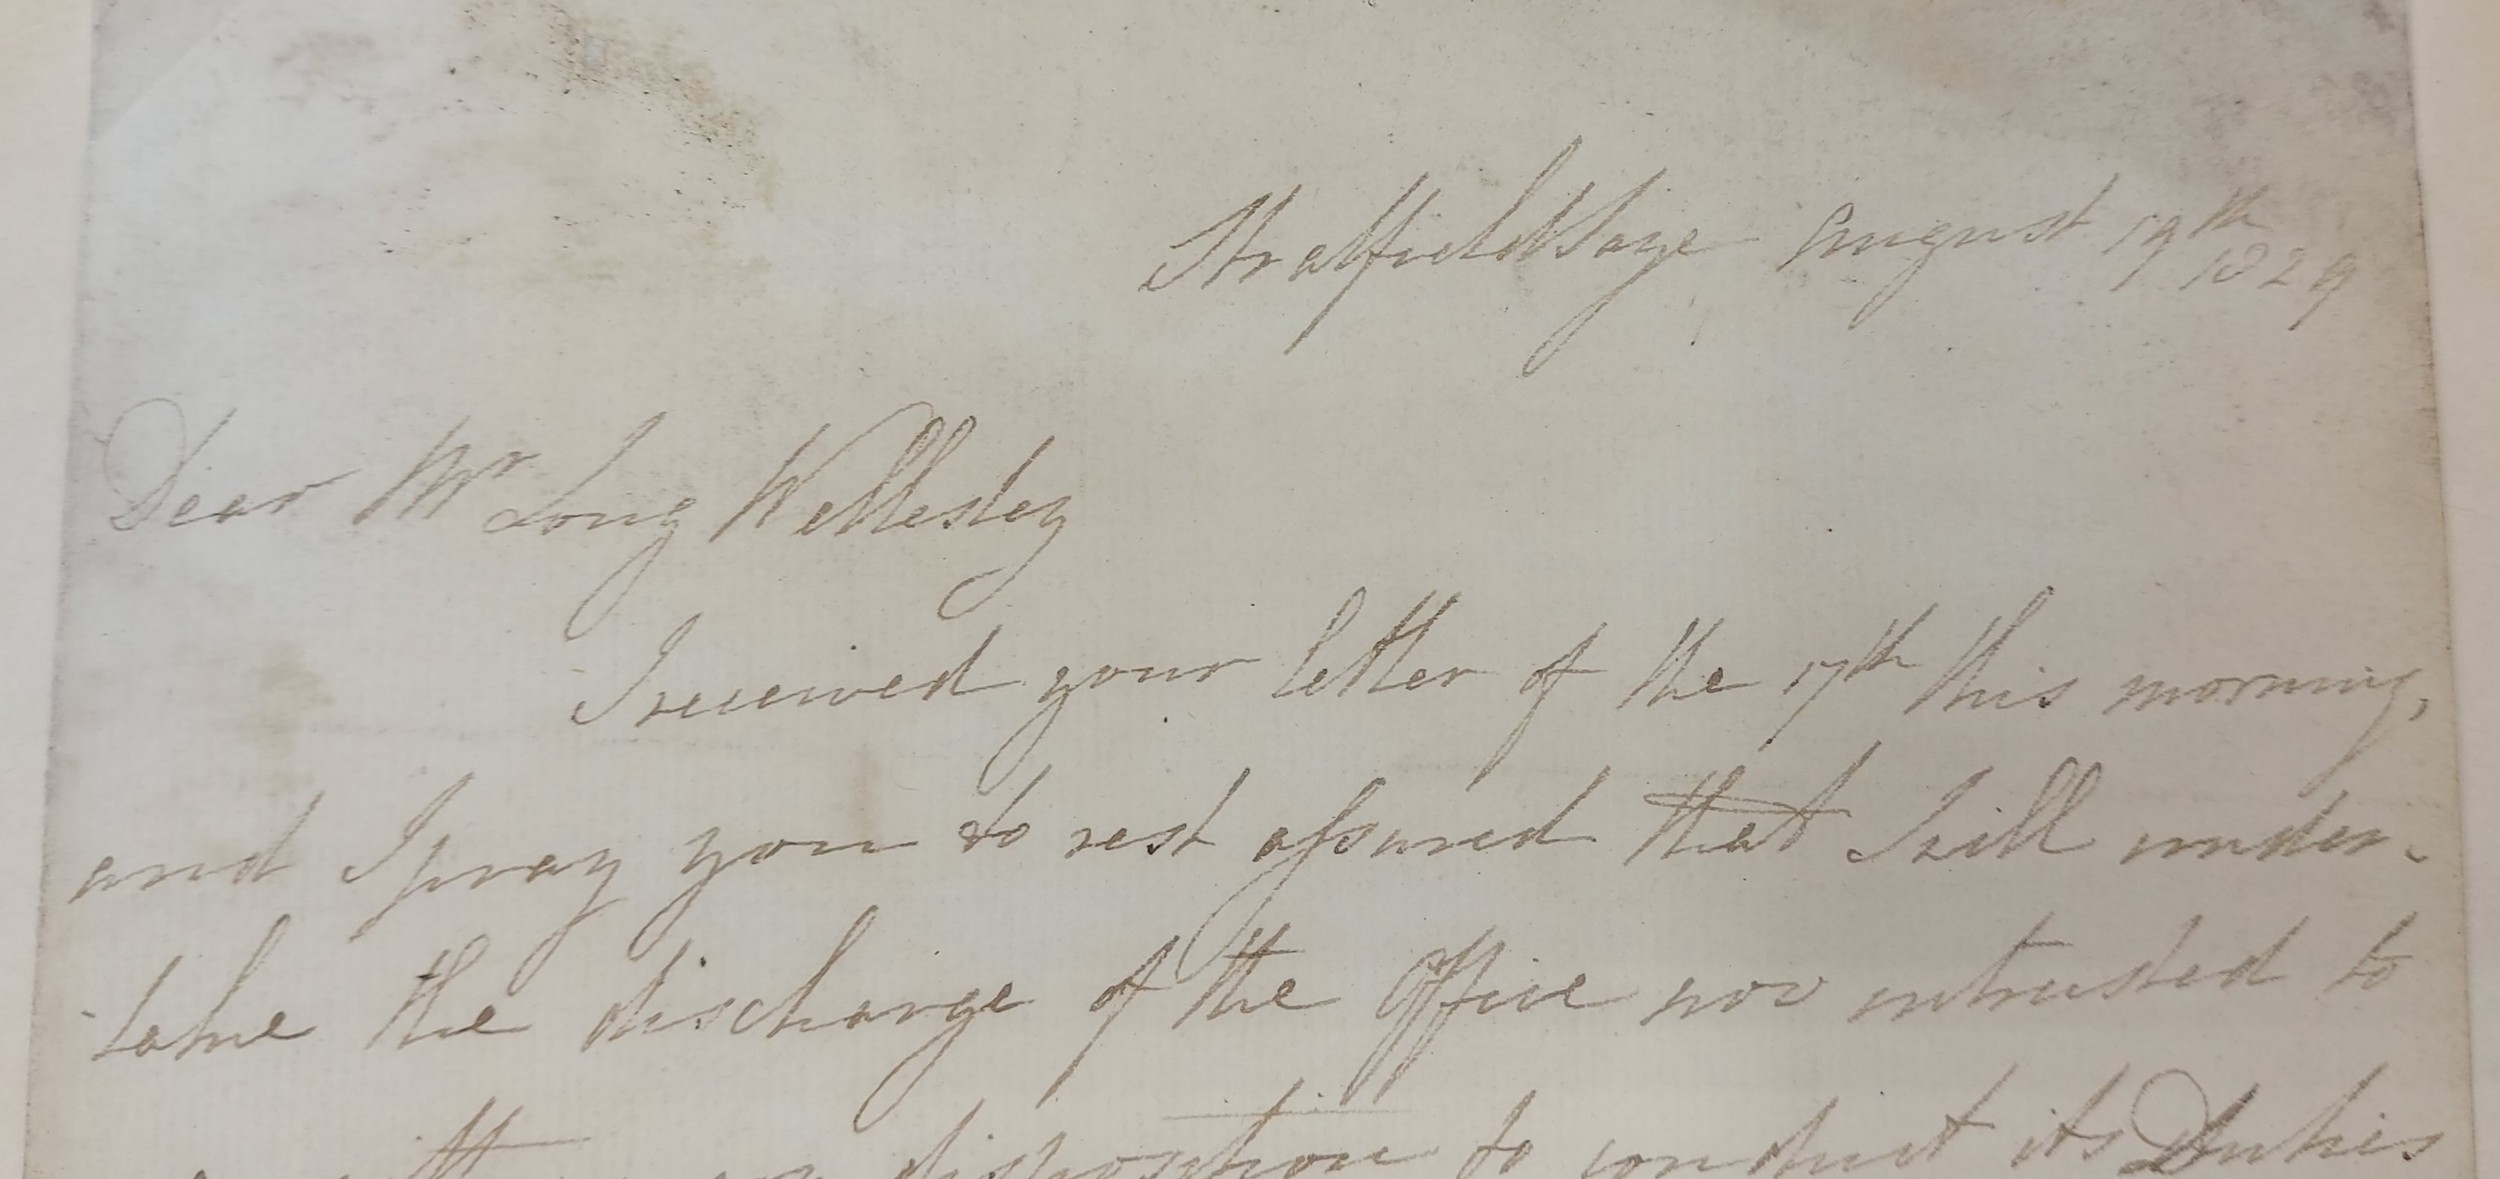 Strathfieldsaye August 19th
1829
Dear Mr Long Wellesley
I received your letter of the 17th this morning,
and I pray you to rest assured that I will under-
take the discharge of the Office now intrusted to
with disposition to conduct its Duties